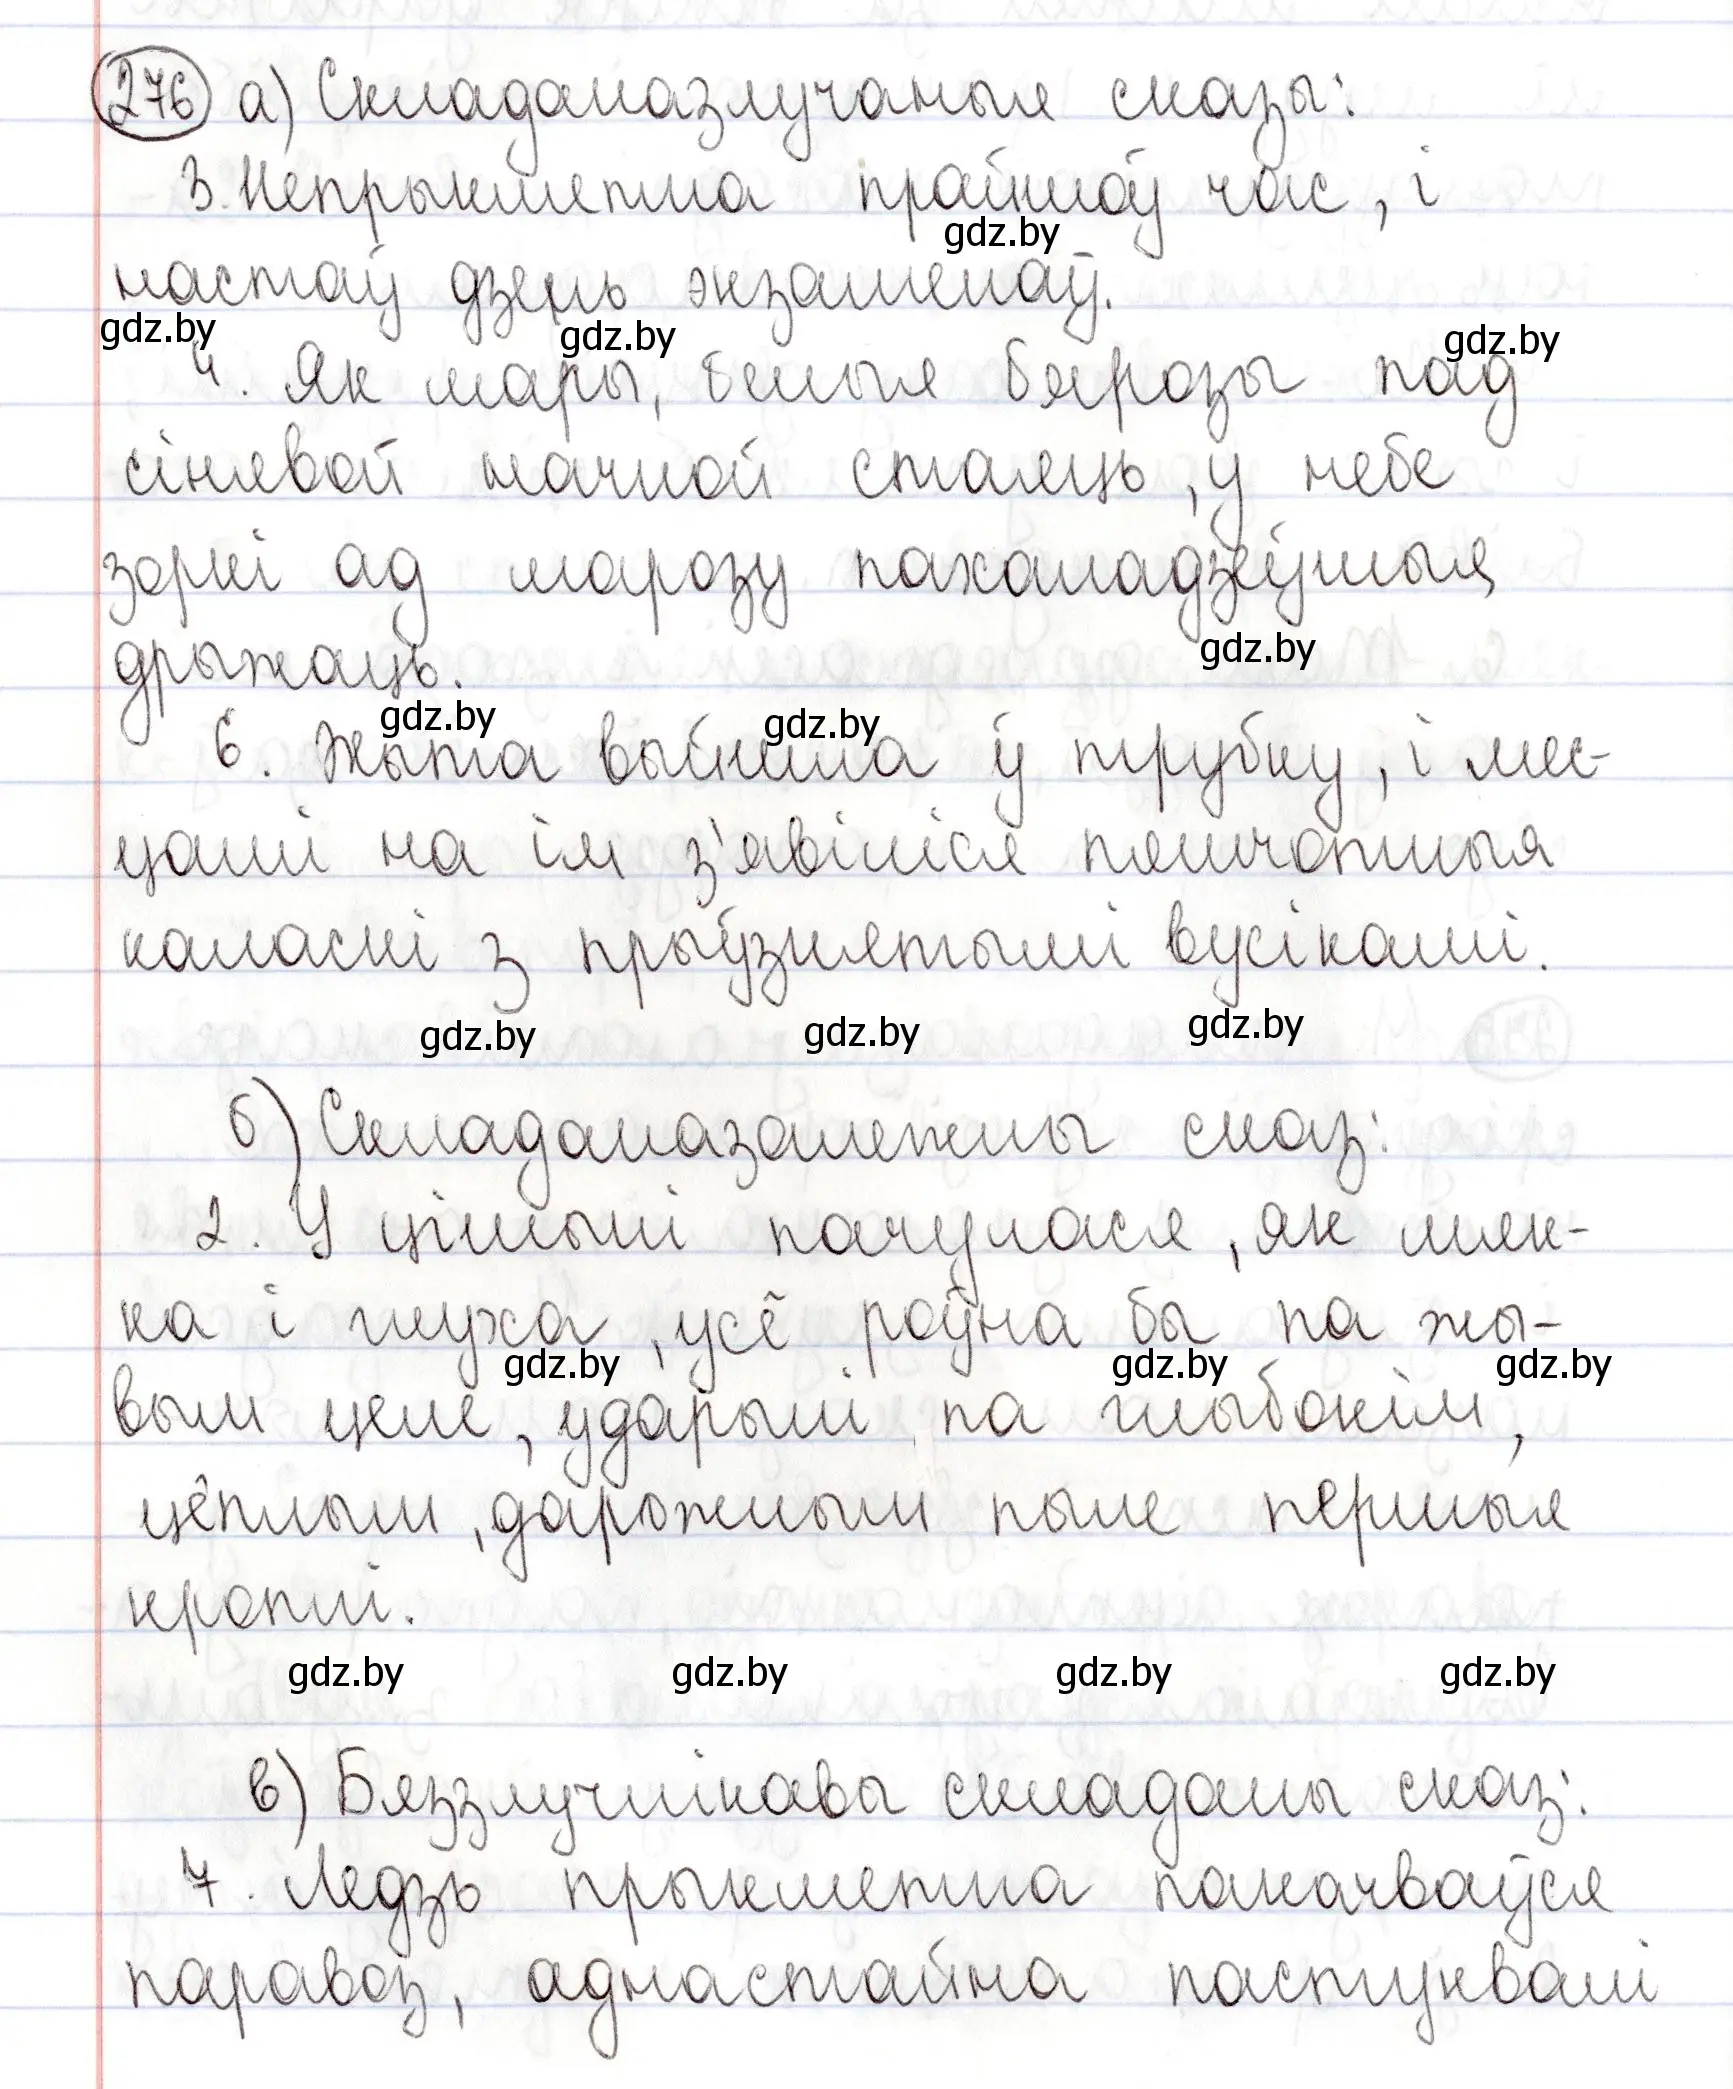 276 а) Складаназлучаныя сказы:
3. Непрыкметна прайшоў час, і
gdz.by
настаў дзень экзаменаў.
gdz.by gdz.by gdz.by
4. Як мары, белыя бярозы пад
сінявой начной стаяць, у небе
зоркі ад марозу пахаладзеўшыя
gdz.by
дрыжаць.
gdz.by gdz.by
6. Жыта выйшла ў трубку, і мес-
цамі на ім з'явіліся пяшчотныя
каласкі з прыўзнятымі вусікамі.
gdz.by gdz.by gdz.by
б) Складаназалежны сказ:
2. У цішыні пачулася, як мяк-
ка і глуха, усё роўна бы па жы-
gdz.by gdz.by gdz.by
вым целе, ударылі па глыбокім,
цёплым, дарожным пыле першыя
кроплі.
gdz.by gdz.by gdz.by gdz.by
в) Бяззлучнікавы складаны сказ:
7. Ледзь прыкметна пакачваўся
паравоз, аднастайна пастуквалі